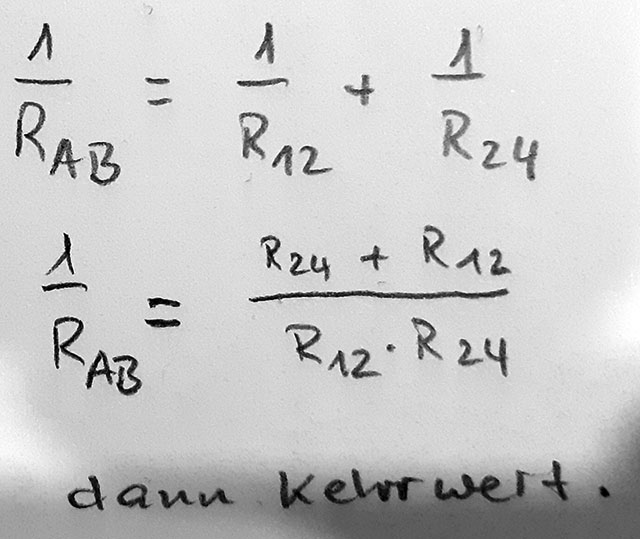 1/R_AB = 1/R_12 + 1/R_24
1/R_AB = (R_24 + R_12)/(R_12 · R_24)
dann Kehrwert.